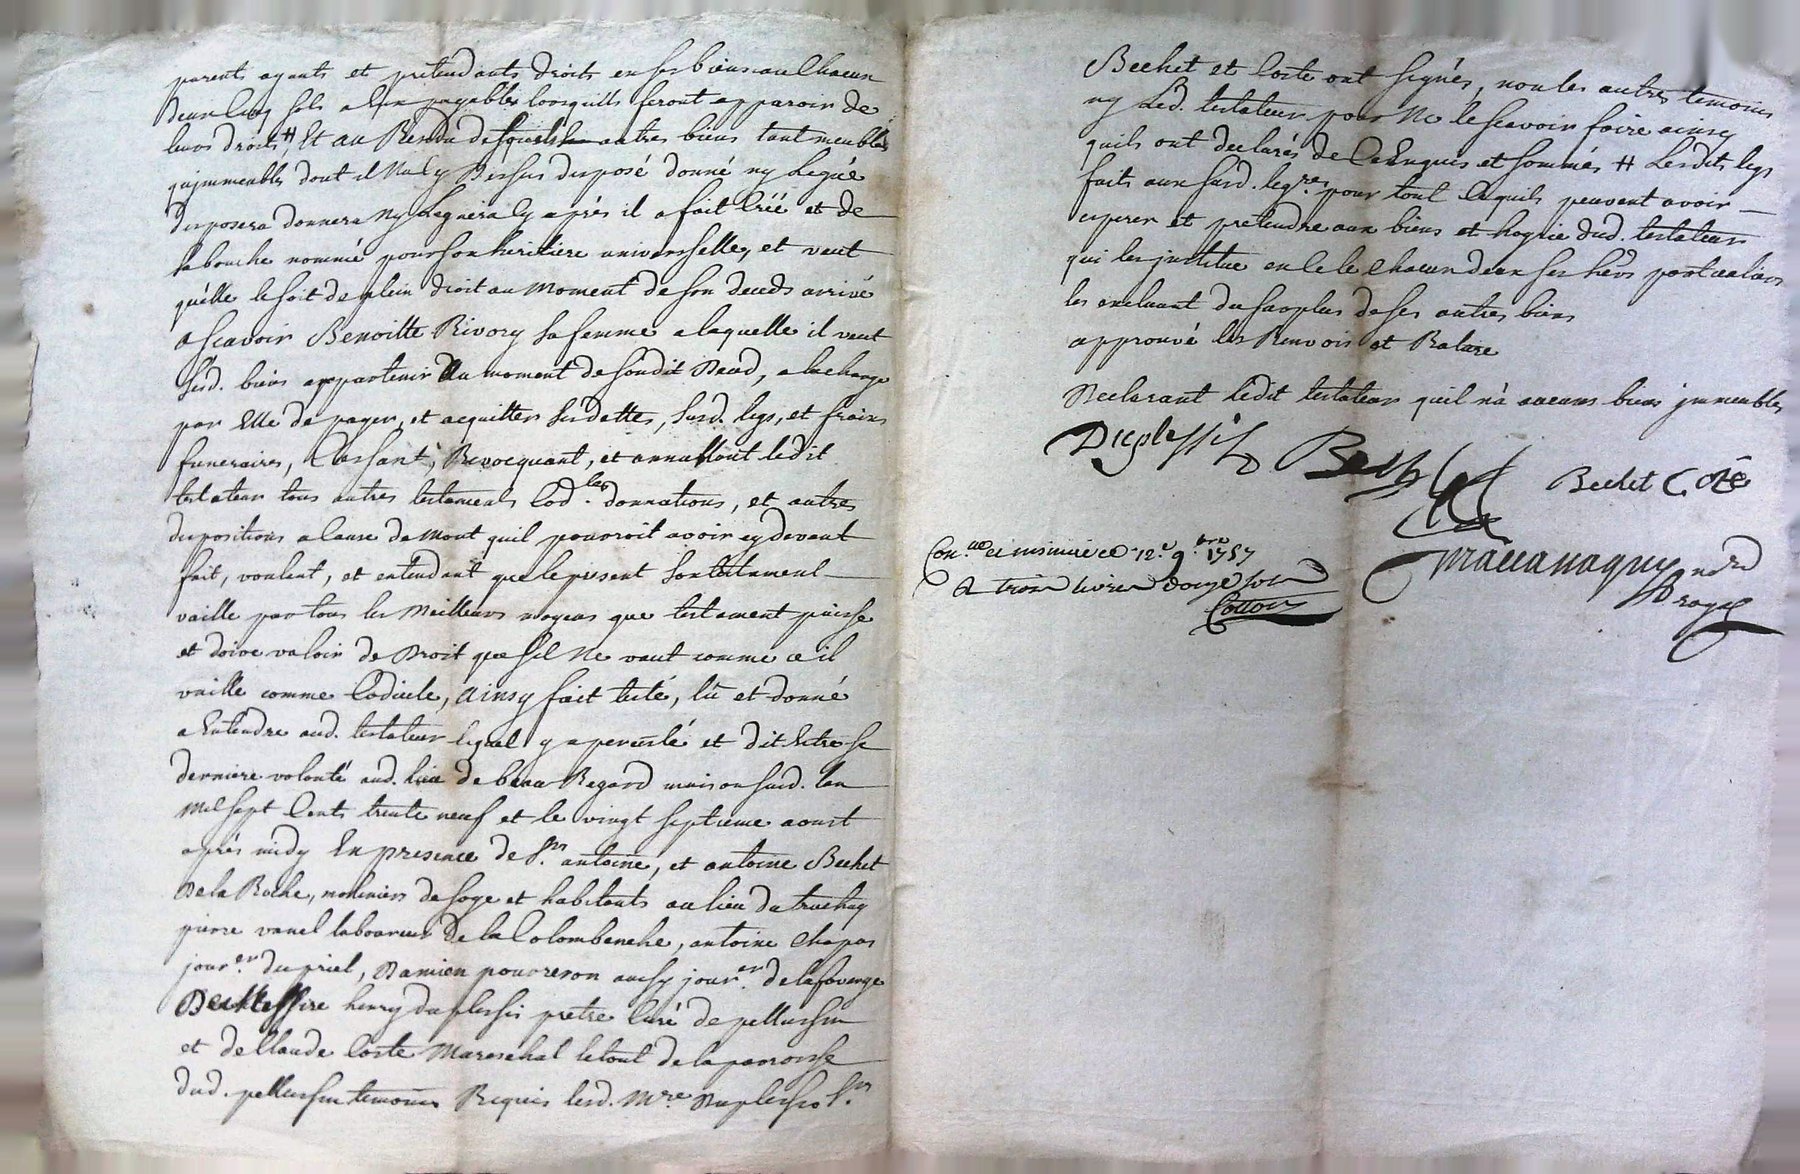 parents ayants et pretendants droits en ses biens au Chacun
Deux Cinq sols a Eux payables lorsquils feront apparoir de
leurs droits # Et au Residu de touts autres biens tant meubles
qujmmeubles dont il Na Cy Dessus disposé donné ny Legué
disposera donnera Ny Leguera Cy après il a fait Créé et de
sa bouche nommé pour son heritiere universselle, et veut
quelle le soit de plein droit au Moment de son deceds arrivé
a scavoir Benoitte Rivory sa femme a laquelle il veut
sesd. biens appartenir Au moment de sondit Deced, a la charge
par Elle de payer, et acquitter ses dettes, susd. legs, et fraix
funeraires, Cassant, Revocquant, et annullant ledit
testateur tous autres testaments Cod.les donnations, et autres
dispositions a Cause de Mort quil pouvroit avoir cy devant
fait, voulant, et entendant que le present son testament
vaille par tous les Meilleurs moyens que testament puisse
et doive valoir de Droit que sil Ne vaut comme ce il
vaille comme Codicile, Ainsy fait testé, lû et donné
a Entendre aud. testateur lequel y a percisté et dit Estre sa
derniere volonté aud. lieu de beau Regard maison susd. lan
Mil sept Cents trente neuf et le vingt septieme aoust
après midy En presence de Srs antoine, et antoine Bechet
De la Roche, moliniers de soye et habitants au lieu du truchay
pierre vanel laboureur de la Colombenche, antoine Chapas
jour.er du priel, Damien pouvreron aussy jour.er de la favenge
De Messire henry duplessis pretre Curé de pellussin
et de Claude Coste Mareschal le tout de la parroisse
dud. pellussin temoins Requis lesd. Mre. Duplessis Srs
Bechet et Coste ont signés, non les autres temoins
ny Led. testateur pour Ne le scavoir faire ainsy
quils ont declarés de Ce Enquis et sommés # Lesdits legs
faits aux susd. leg.res pour tout Ce quils peuvent avoir
esperer et pretendre aux biens et hoyrie dud. testateur
qui les jnstitue en Ce le Chacun deux ses hers particuliers
les excluant du surplus de ses autres biens
approuvé les Renvois et Rature
Declarant ledit testateur quil n'a aucuns biens jmmeubles
Duplessis Bechet Bechet C. Coste
Con.llé et insinué ce 12.e 9.bre 1757
R trois livres douze sols
Cottou
Maccanaguy